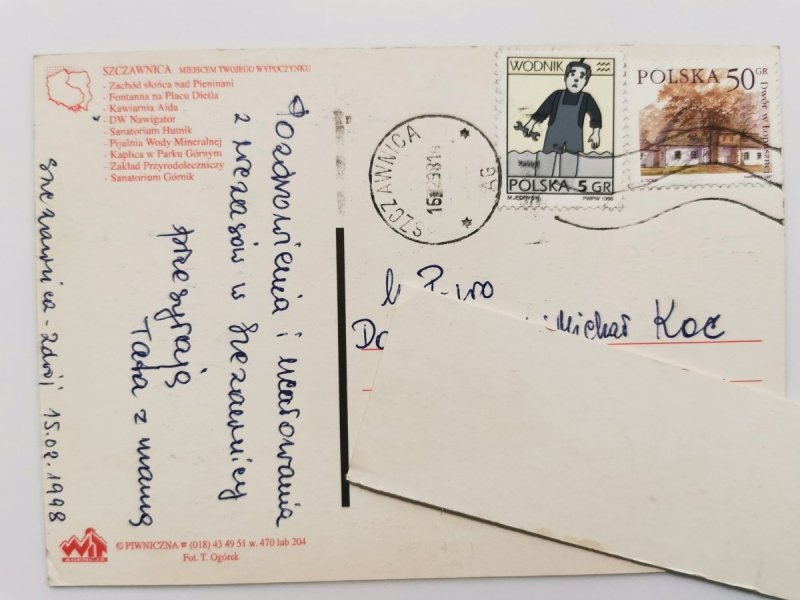 SZCZAWNICA MIEJSCEM TWOJEGO WYPOCZYNKU
- Zachód słońca nad Pieninami
- Fontanna na Placu Dietla
- Kawiarnia Aida
- DW Nawigator
- Sanatorium Hutnik
- Pijalnia Wody Mineralnej
- Kaplica w Parku Górnym
- Zakład Przyrodoleczniczy
- Sanatorium Górnik
Pozdrowienia i ucałowania
z wczasów w Szczawnicy
przesyłają
Tata z mamą
Szczawnica-Zdrój 15.02.1998
WiT
AGENCJA
© PIWNICZNA ☎ (018) 43 49 51 w. 470 lub 204
Fot. T. Ogórek
SZCZAWNICA
AG
WODNIK
POLSKA 5 GR
PWPW 1996
POLSKA 50 GR
Dwór w Łopusznej
Michał Koc